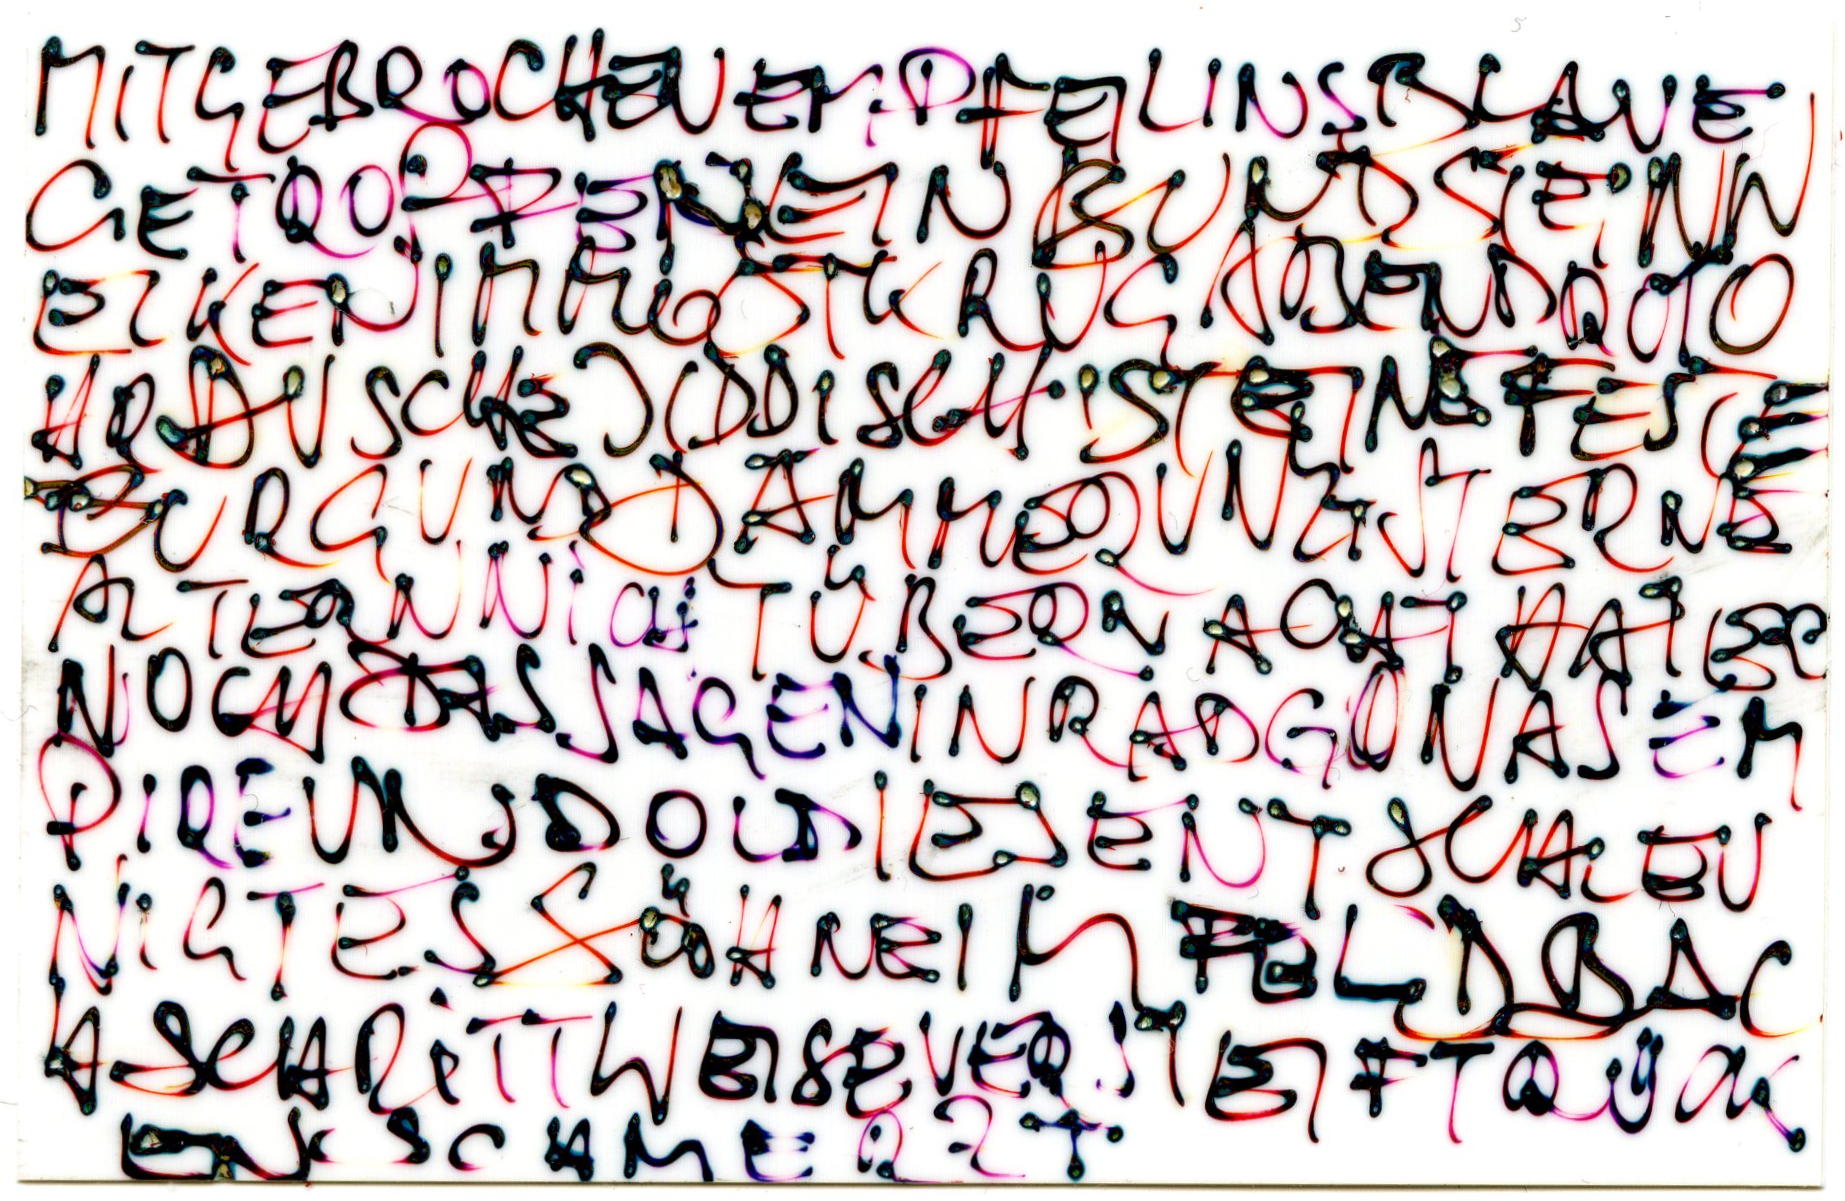 MITGEBROCHENEMPFEILINSBLAUE
GETROFFENEINBUNDSTEINN
ELKENIMMOSTKRUGABENDROTO
HRAUSCHEJIDDISCHISTEINEFESTE
BURGUNDDAMMERUNGSTERNE
ALTERNNICHTÜBERNACHTHATER
NOCHDASSAGENINRADGONASEM
PIREUNDOLDIESENTSCHLEU
NIGTESÖHNEIMFELDBAC
HSCHRITTWEISEVERSTEIFTRÜCK
ENSCHMERZT